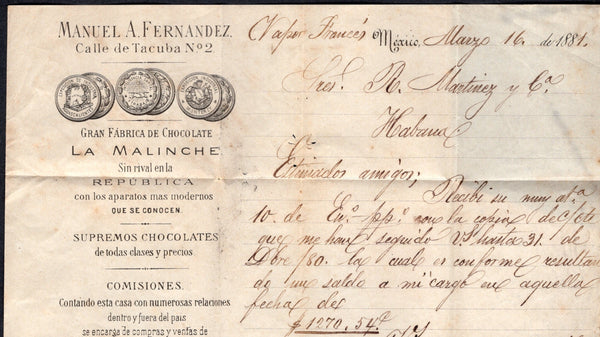 MANUEL A. FERNANDEZ.
Calle de Tacuba Nº 2
GRAN FÁBRICA DE CHOCOLATE
LA MALINCHE.
Sin rival en la
REPÚBLICA
con los aparatos mas modernos
QUE SE CONOCEN.
SUPREMOS CHOCOLATES
de todas clases y precios.
COMISIONES.
Contando esta casa con numerosas relaciones
dentro y fuera del pais
se encarga de compras y ventas de
Vapor Francés
México, Marzo 16. de 1881.
Sres. R. Martinez y Cª
Habana
Estimados amigos;
Recibi su muy atª
10. de Enº ppº con la copia de c/cte
que me han seguido VS hasta 31. de
Dbre /80. la cual es conforme resultan
do un saldo a mi cargo en aquella
fecha de
$ 1270.54